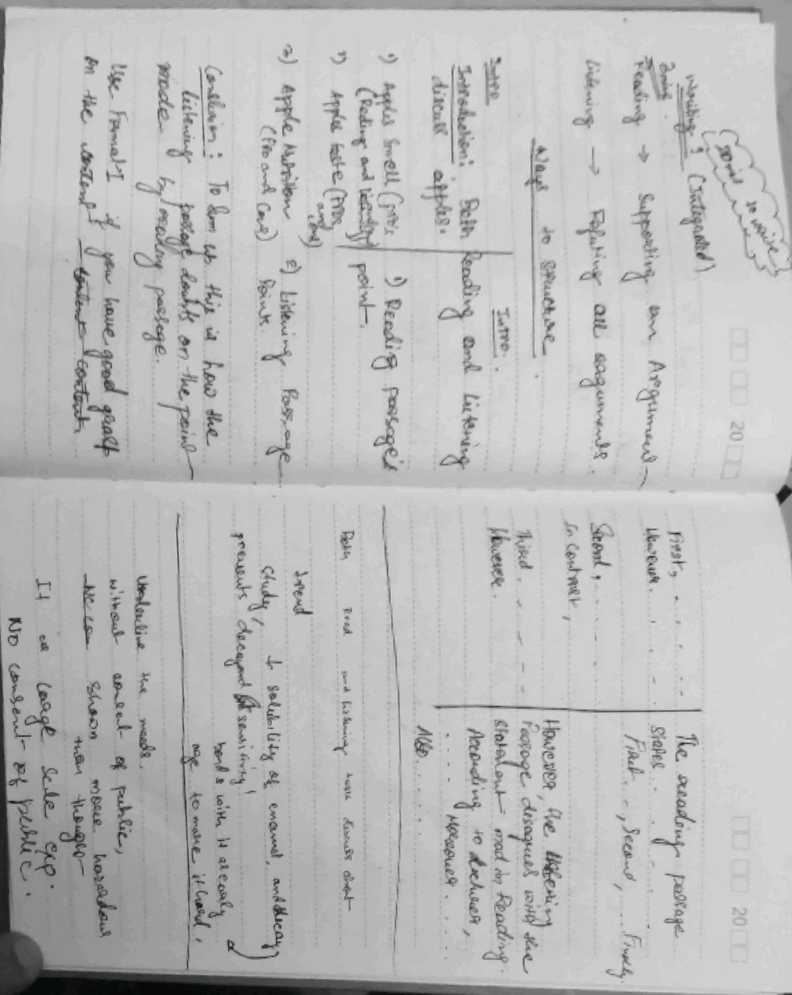 20
Points to write
Writing 1 (Integrated)
Reading → Supporting an Argument
Listening → Refuting all arguments.
Ways to structure.
Intro
Introduction: Both Reading and Listening
discuss apples.
1) Apples Smell (
(Reading and Listening)
2) Apples taste (Pros
and Cons)
3) Apple Nutrition
(Pros and Cons)
Intro.
1) Reading passage's
point.
2) Listening Passage
Point.
Conclusion: To sum up this is how the
listening passage doubts on the point
made by reading passage.
Use Format 1 if you have good grasp
on the content content content
20
First, . . . . . .
However. . . . . .
Second, . . . . .
In contrast,
Third. - - - -
However.
The reading passage
states . . . . .
First. -, Second, ... Finally.
However, the listening
Passage disagrees with the
statement mad in Reading.
According to lecturer,
. . . . Moreover. . . . .
Also . . . . .
Both and listening
trend
study, ↓ solubility of enamel, and decay
prevents decay and sensitivity
bonds with it at early
age to make it hard.
Underline the needs.
without consent of public,
shown more hazardous
than thought
It a large scale exp.
No consent of public.